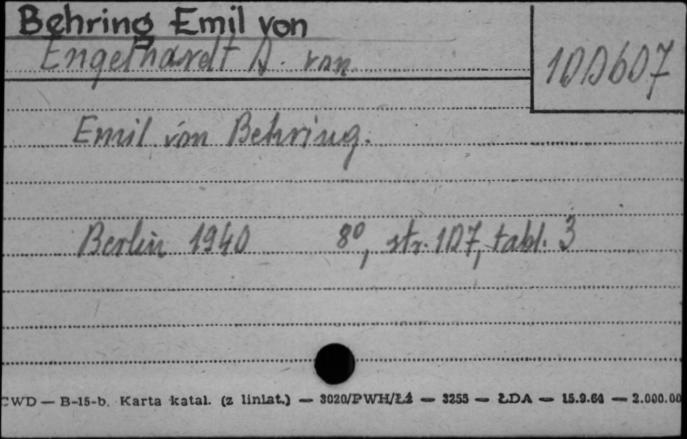 Behring Emil von
Engelhardt A. von
100607
Emil von Behring.
Berlin 1940 8°, str. 107, tabl. 3
CWD — B-15-b. Karta katal. (z liniat.) — 3020/PWH/Łź — 3255 — ŁDA — 15.9.64 — 2.000.00